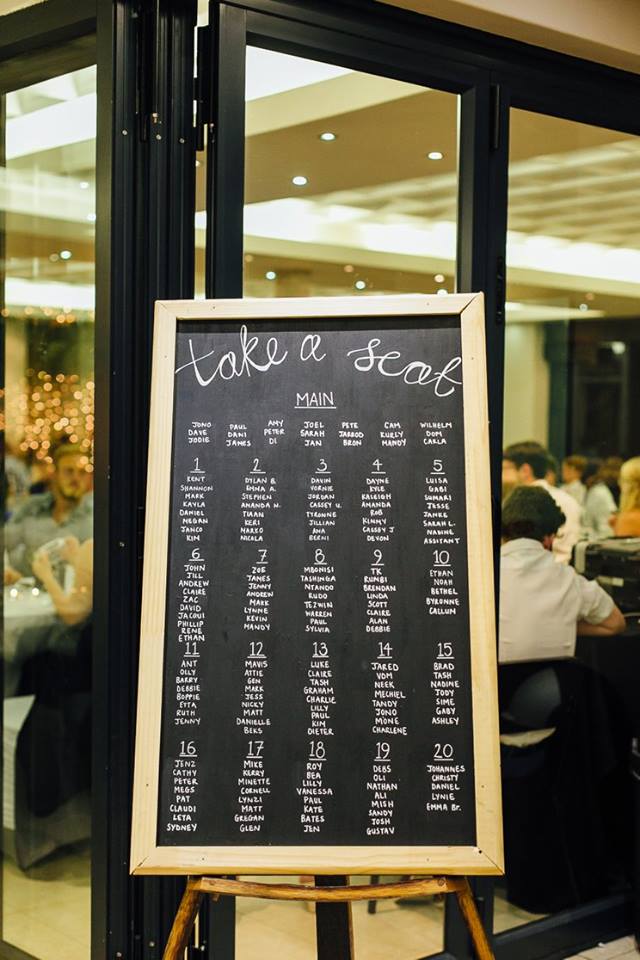 take a seat
MAIN
JONO
DAVE
JODIE
PAUL
DANI
JAMES
AMY
PETER
DI
JOEL
SARAH
JAN
PETE
JARROD
BRON
CAM
KURLY
MANDY
WILHELM
DOM
CARLA
1
KENT
SHANNON
MARK
KAYLA
DANIEL
MEGAN
JANCO
KIM
2
DYLAN B.
EMMA A.
STEPHEN
AMANDA N.
TUAN
KERI
MARKO
NICOLA
3
DAVIN
YORNIE
JORDAN
CASSEY U.
TYRONNE
JILLIAN
ANA
BERNI
4
DAYNE
KYLE
KALEIGH
AMANDA
ROB
KIMMY
CASSEY J
DEVON
5
LUISA
GABI
SUMARI
JESSE
JANKE
SARAH L.
NANINE
ASSISTANT
6
JOHN
JILL
ANDREW
CLAIRE
ZAC
DAVID
JACQUI
PHILLIP
RENE
ETHAN
7
ZOE
JAMES
JENNY
ANDREW
MARK
LYNNE
KEVIN
MANDY
8
MBONISI
TASHINGA
NTANDO
KUDO
TEZWIN
WARREN
PAUL
SYLVIA
9
TK
RUMBI
BRENDAN
LINDA
SCOTT
CLAIRE
ALAN
DEBBIE
10
ETHAN
NOAH
BETHEL
BYRONNE
CALLUM
11
ANT
OLLY
BARRY
DEBBIE
BOPPIE
ETTA
RUTH
JENNY
12
MAVIS
ATTIE
GEN
MARK
JESS
NICKY
MATT
DANIELLE
BEKS
13
LUKE
CLAIRE
TASH
GRAHAM
CHARLIE
LILLY
PAUL
KIM
DIETER
14
JARED
VDM
NEEK
MECHIEL
TANDY
JONO
MONE
CHARLENE
15
BRAD
TASH
NADINE
JODY
SIME
GABY
ASHLEY
16
JENZ
CATHY
PETER
MEGS
PAT
CLAUDI
LETA
SYDNEY
17
MIKE
KERRY
MINETTE
CORNELL
LYNZI
MATT
GREGAN
GLEN
18
ROY
BEA
LILLY
VANESSA
PAUL
KATE
BATES
JEN
19
DEBS
OLI
NATHAN
ALI
MISH
SANDY
JOSH
GUSTAV
20
JOHANNES
CHRISTY
DANIEL
LYNIE
EMMA Br.